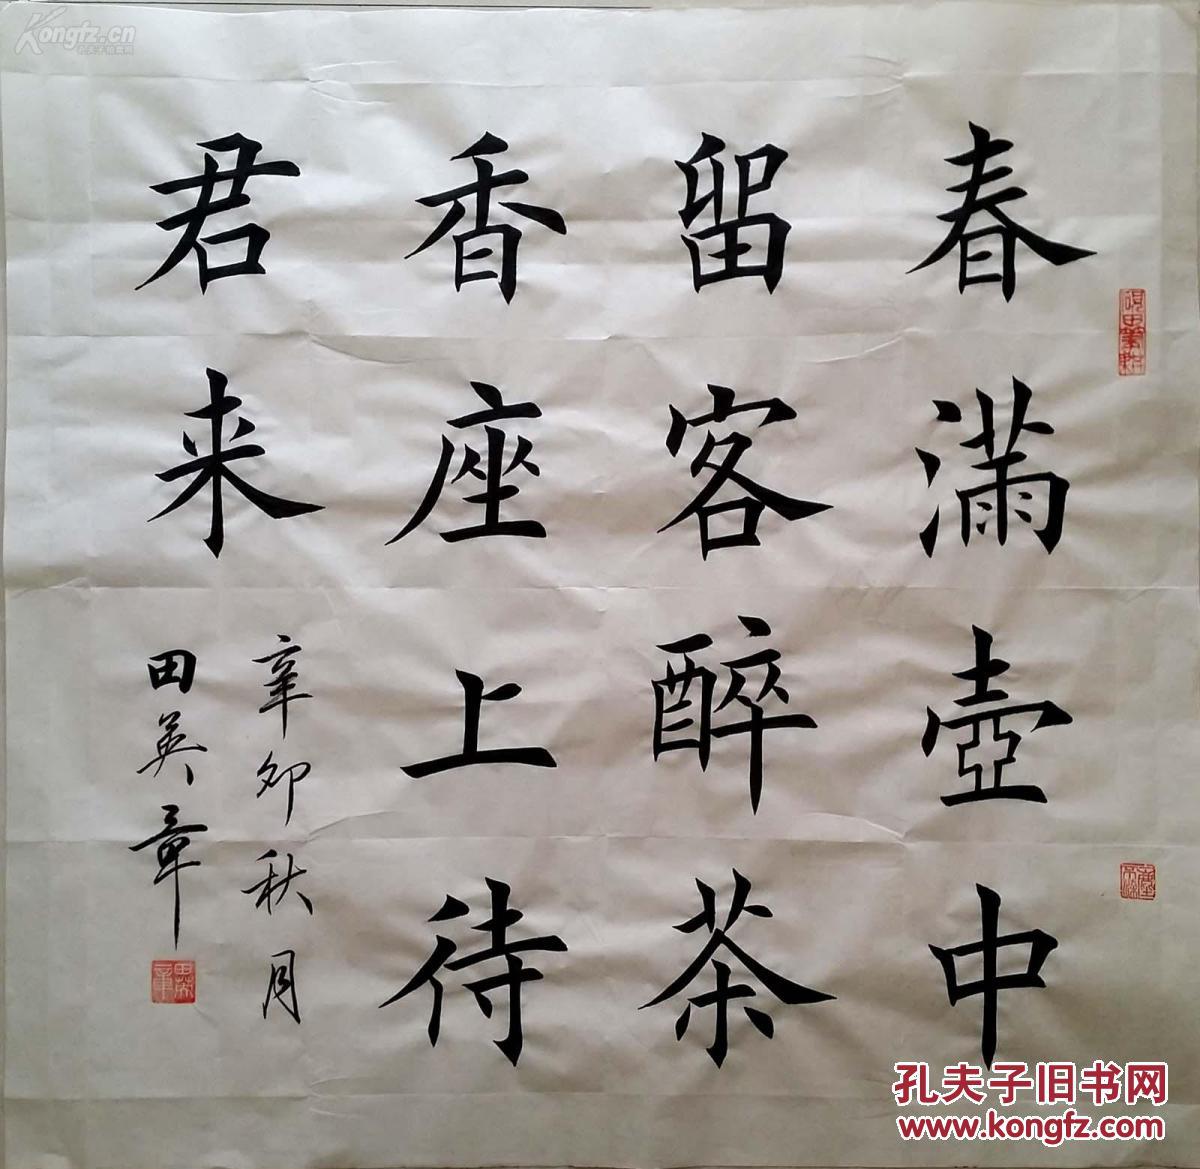 春满壶中
留客醉茶
香座上待
君来
辛卯秋月
田英章
Kongfz.cn
孔夫子旧书网
www.kongfz.com